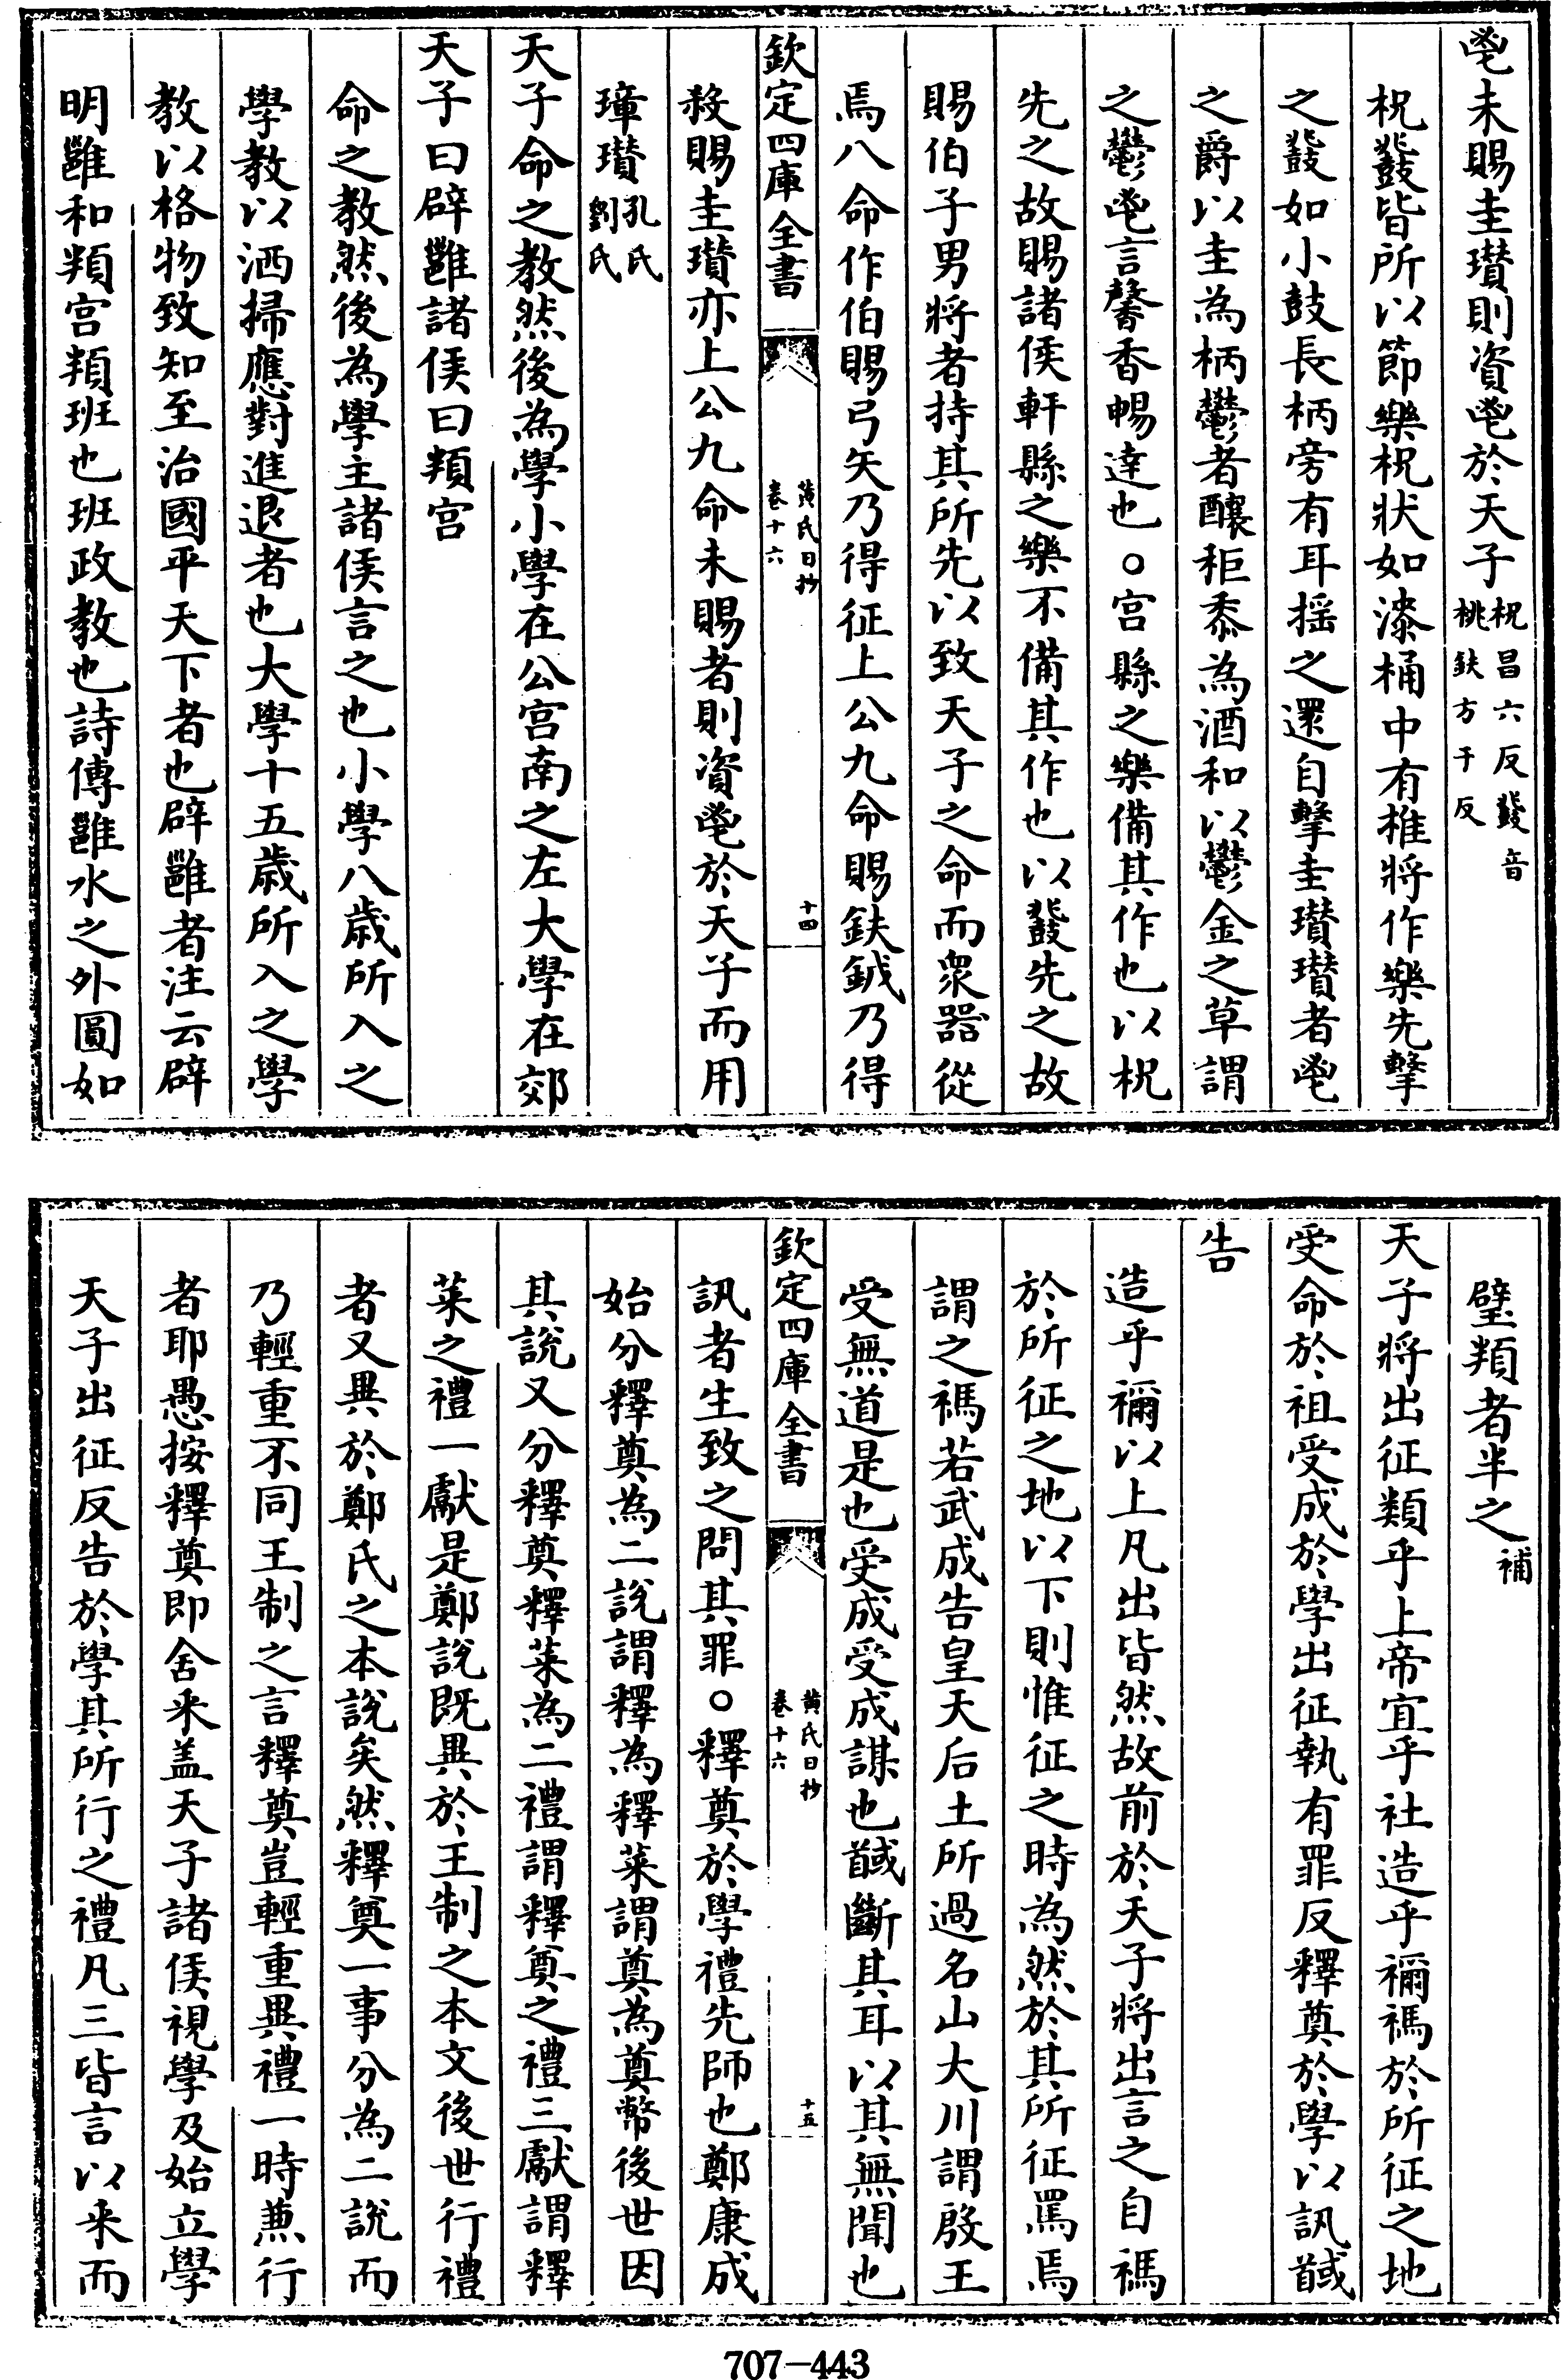 鬯未賜圭瓚則資鬯於天子柷昌六反鼗音桃鈇方于反
柷鼗皆所以節樂柷狀如漆桶中有椎將作樂先擊
之鼗如小鼓長柄旁有耳揺之還自擊圭瓚瓚者鬯
之爵以圭為柄鬱者釀秬黍為酒和以鬱金之草謂
之鬱鬯言馨香暢達也○宫縣之樂備其作也以柷
先之故賜諸侯軒縣之樂不備其作也以鼗先之故
賜伯子男將者持其所先以致天子之命而衆器從
焉八命作伯賜弓矢乃得征上公九命賜鈇鉞乃得
欽定四庫全書 黄氏日抄 卷十六 十四
殺賜圭瓚亦上公九命未賜者則資鬯於天子而用
璋瓚孔氏劉氏
天子命之教然後為學小學在公宫南之左大學在郊
天子曰辟雝諸侯曰頖宫
命之教然後為學主諸侯言之也小學八歲所入之
學教以洒掃應對進退者也大學十五歲所入之學
教以格物致知至治國平天下者也辟雝者注云辟
明雝和頖宫頖班也班政教也詩傳雝水之外圓如
璧頖者半之補
天子將出征類乎上帝宜乎社造乎禰禡於所征之地
受命於祖受成於學出征執有罪反釋奠於學以訊馘
告
造乎禰以上凡出皆然故前於天子將出言之自禡
於所征之地以下則惟征之時為然於其所征罵焉
謂之禡若武成告皇天后土所過名山大川謂殷王
受無道是也受成受成謀也馘斷其耳以其無聞也
欽定四庫全書 黄氏日抄 卷十六 十五
訊者生致之問其罪○釋奠於學禮先師也鄭康成
始分釋奠為二說謂釋為釋菜謂奠為奠幣後世因
其說又分釋奠釋菜為二禮謂釋奠之禮三獻謂釋
菜之禮一獻是鄭說既異於王制之本文後世行禮
者又異於鄭氏之本說矣然釋奠一事分為二說而
乃輕重不同王制之言釋奠豈輕重異禮一時兼行
者耶愚按釋奠即舍釆盖天子諸侯視學及始立學
天子出征反告於學其所行之禮凡三皆言以釆而
707-443